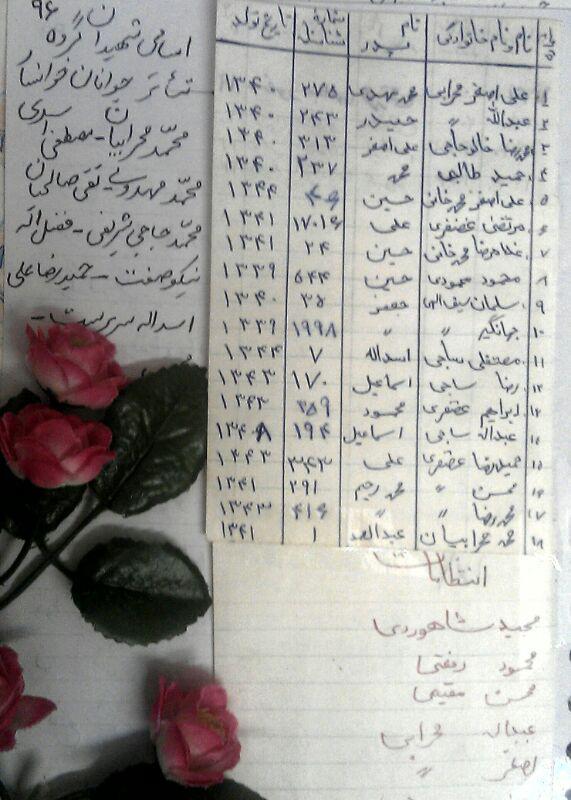 ن ۹۶
اسامی شهیدان گروه
تئاتر جوانان فرانسار
ن سری
محمد محرابیان - مصطفی
محمد مهدوی - تقی صالحیان
محمد حاجی شریفی - فضل اله
نیکو صفت - حمیدرضا علی
اسداله سرپرست -
نام و نام خانوادگی نام پدر شماره شناسنامه تاریخ تولد
۱ علی اصغر محرابی محمد مهدی ۲۷۵ ۱۳۴۰
۲ عبدالله " حیدر ۲۴۳ ۱۳۴۰
۳ محمدرضا خانو حاجی علی اصغر ۳۱۳ ۱۳۴۰
۴ حمید طالبی محمد ۲۳۷ ۱۳۴۰
۵ علی اصغر محمدخانی حسین ۱۳۴۴
۶ مرتضی غضنفری علی ۱۷۰۱۶ ۱۳۴۱
۷ غلامرضا محمدخانی حسین ۲۴ ۱۳۴۱
۸ محمود محمودی حسین ۵۴۴ ۱۳۳۹
۹ سلمان سیف الهی جعفر ۳۵ ۱۳۴۰
۱۰ جهانگیر " " ۱۹۹۸ ۱۳۳۹
۱۱ مصطفی ساجی اسداله ۷ ۱۳۴۴
۱۲ رضا ساجی اسماعیل ۱۷۰ ۱۳۴۳
۱۳ ابراهیم غضنفری محمود ۲۵۹ ۱۳۴۳
۱۴ عبداله ساجی اسماعیل ۱۹۴ ۱۳۴۸
۱۵ حمیدرضا غضنفری علی ۳۴۳ ۱۳۴۳
۱۶ محسن " محمد رحیم ۲۹۱ ۱۳۴۱
۱۷ محمدرضا " " ۴۱۶ ۱۳۴۳
۱۸ محمد محرابیان عبدالصمد ۱ ۱۳۴۱
انتظامات
مجید شاهوردی
محمود رفعتی
محسن مقیمی
عبداله محرابی
اصغر "